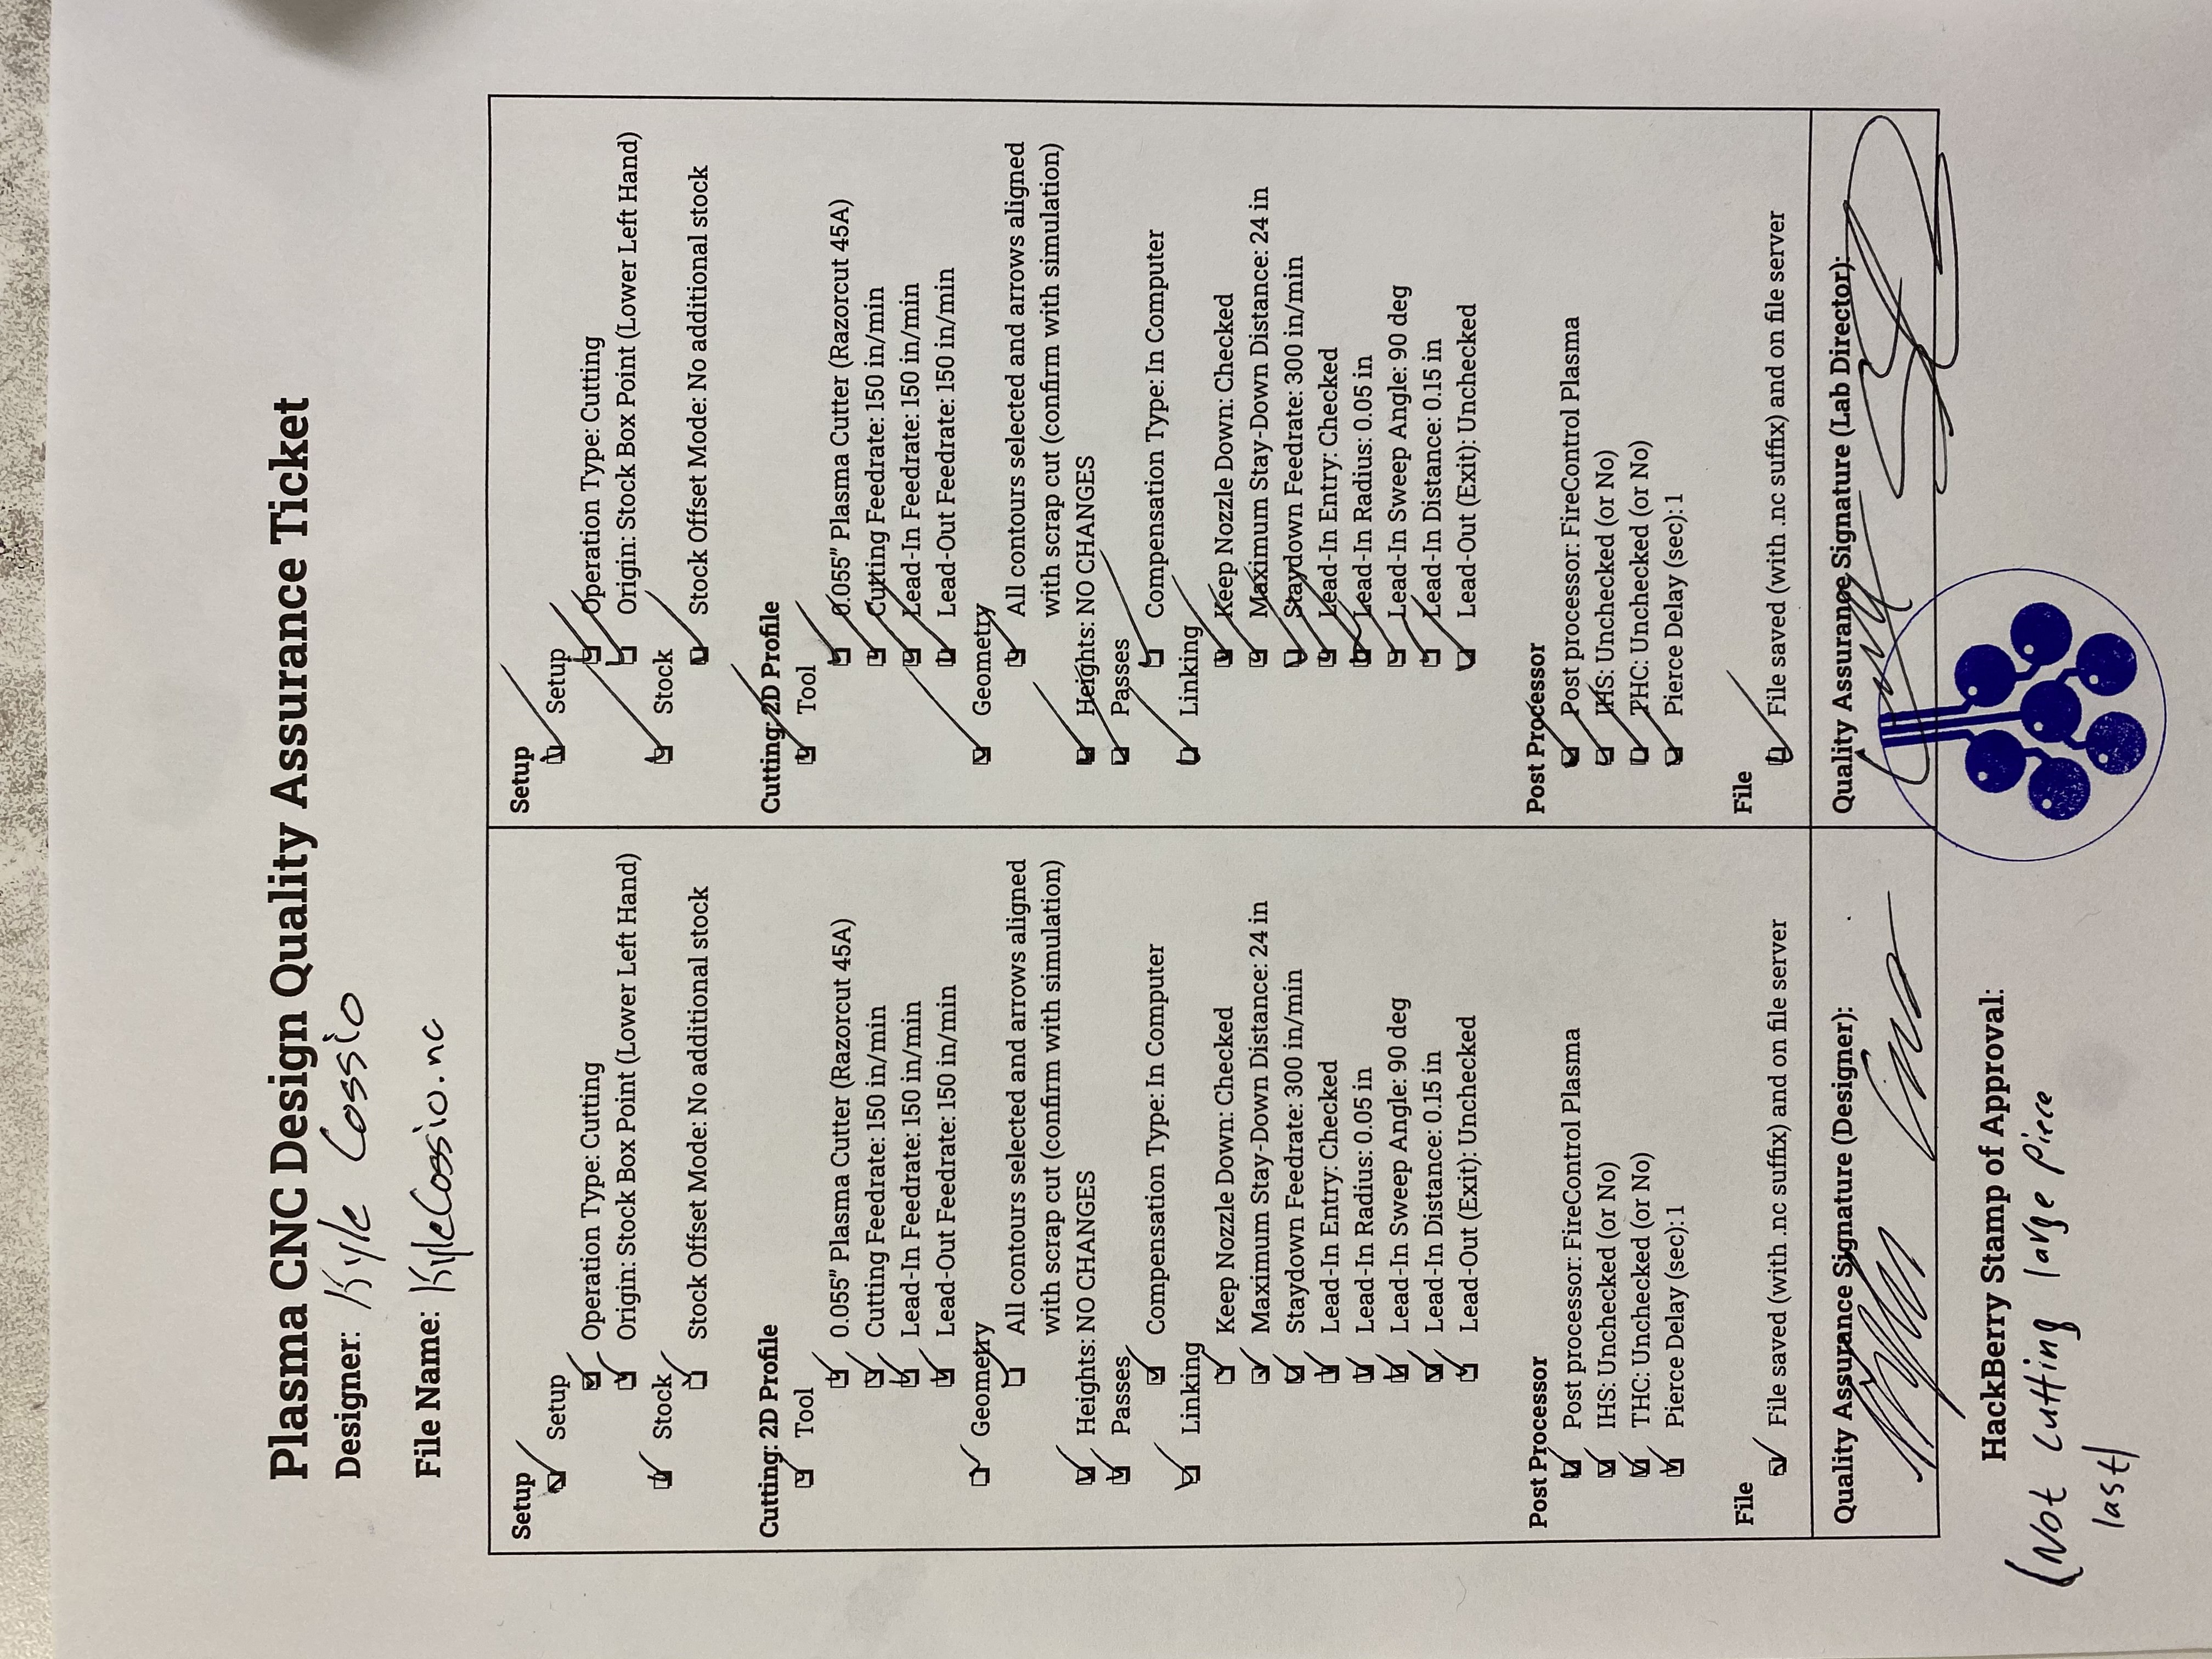 Plasma CNC Design Quality Assurance Ticket
Designer: Kyle Cossio
File Name: KyleCossio.nc
Setup
Setup
Operation Type: Cutting
Origin: Stock Box Point (Lower Left Hand)
Stock
Stock Offset Mode: No additional stock
Cutting: 2D Profile
Tool
0.055" Plasma Cutter (Razorcut 45A)
Cutting Feedrate: 150 in/min
Lead-In Feedrate: 150 in/min
Lead-Out Feedrate: 150 in/min
Geometry
All contours selected and arrows aligned
with scrap cut (confirm with simulation)
Heights: NO CHANGES
Passes
Compensation Type: In Computer
Linking
Keep Nozzle Down: Checked
Maximum Stay-Down Distance: 24 in
Staydown Feedrate: 300 in/min
Lead-In Entry: Checked
Lead-In Radius: 0.05 in
Lead-In Sweep Angle: 90 deg
Lead-In Distance: 0.15 in
Lead-Out (Exit): Unchecked
Post Processor
Post processor: FireControl Plasma
IHS: Unchecked (or No)
THC: Unchecked (or No)
Pierce Delay (sec): 1
File
File saved (with .nc suffix) and on file server
Quality Assurance Signature (Designer):
Setup
Setup
Operation Type: Cutting
Origin: Stock Box Point (Lower Left Hand)
Stock
Stock Offset Mode: No additional stock
Cutting: 2D Profile
Tool
0.055" Plasma Cutter (Razorcut 45A)
Cutting Feedrate: 150 in/min
Lead-In Feedrate: 150 in/min
Lead-Out Feedrate: 150 in/min
Geometry
All contours selected and arrows aligned
with scrap cut (confirm with simulation)
Heights: NO CHANGES
Passes
Compensation Type: In Computer
Linking
Keep Nozzle Down: Checked
Maximum Stay-Down Distance: 24 in
Staydown Feedrate: 300 in/min
Lead-In Entry: Checked
Lead-In Radius: 0.05 in
Lead-In Sweep Angle: 90 deg
Lead-In Distance: 0.15 in
Lead-Out (Exit): Unchecked
Post Processor
Post processor: FireControl Plasma
IHS: Unchecked (or No)
THC: Unchecked (or No)
Pierce Delay (sec): 1
File
File saved (with .nc suffix) and on file server
Quality Assurance Signature (Lab Director):
HackBerry Stamp of Approval:
(Not cutting large piece
last)